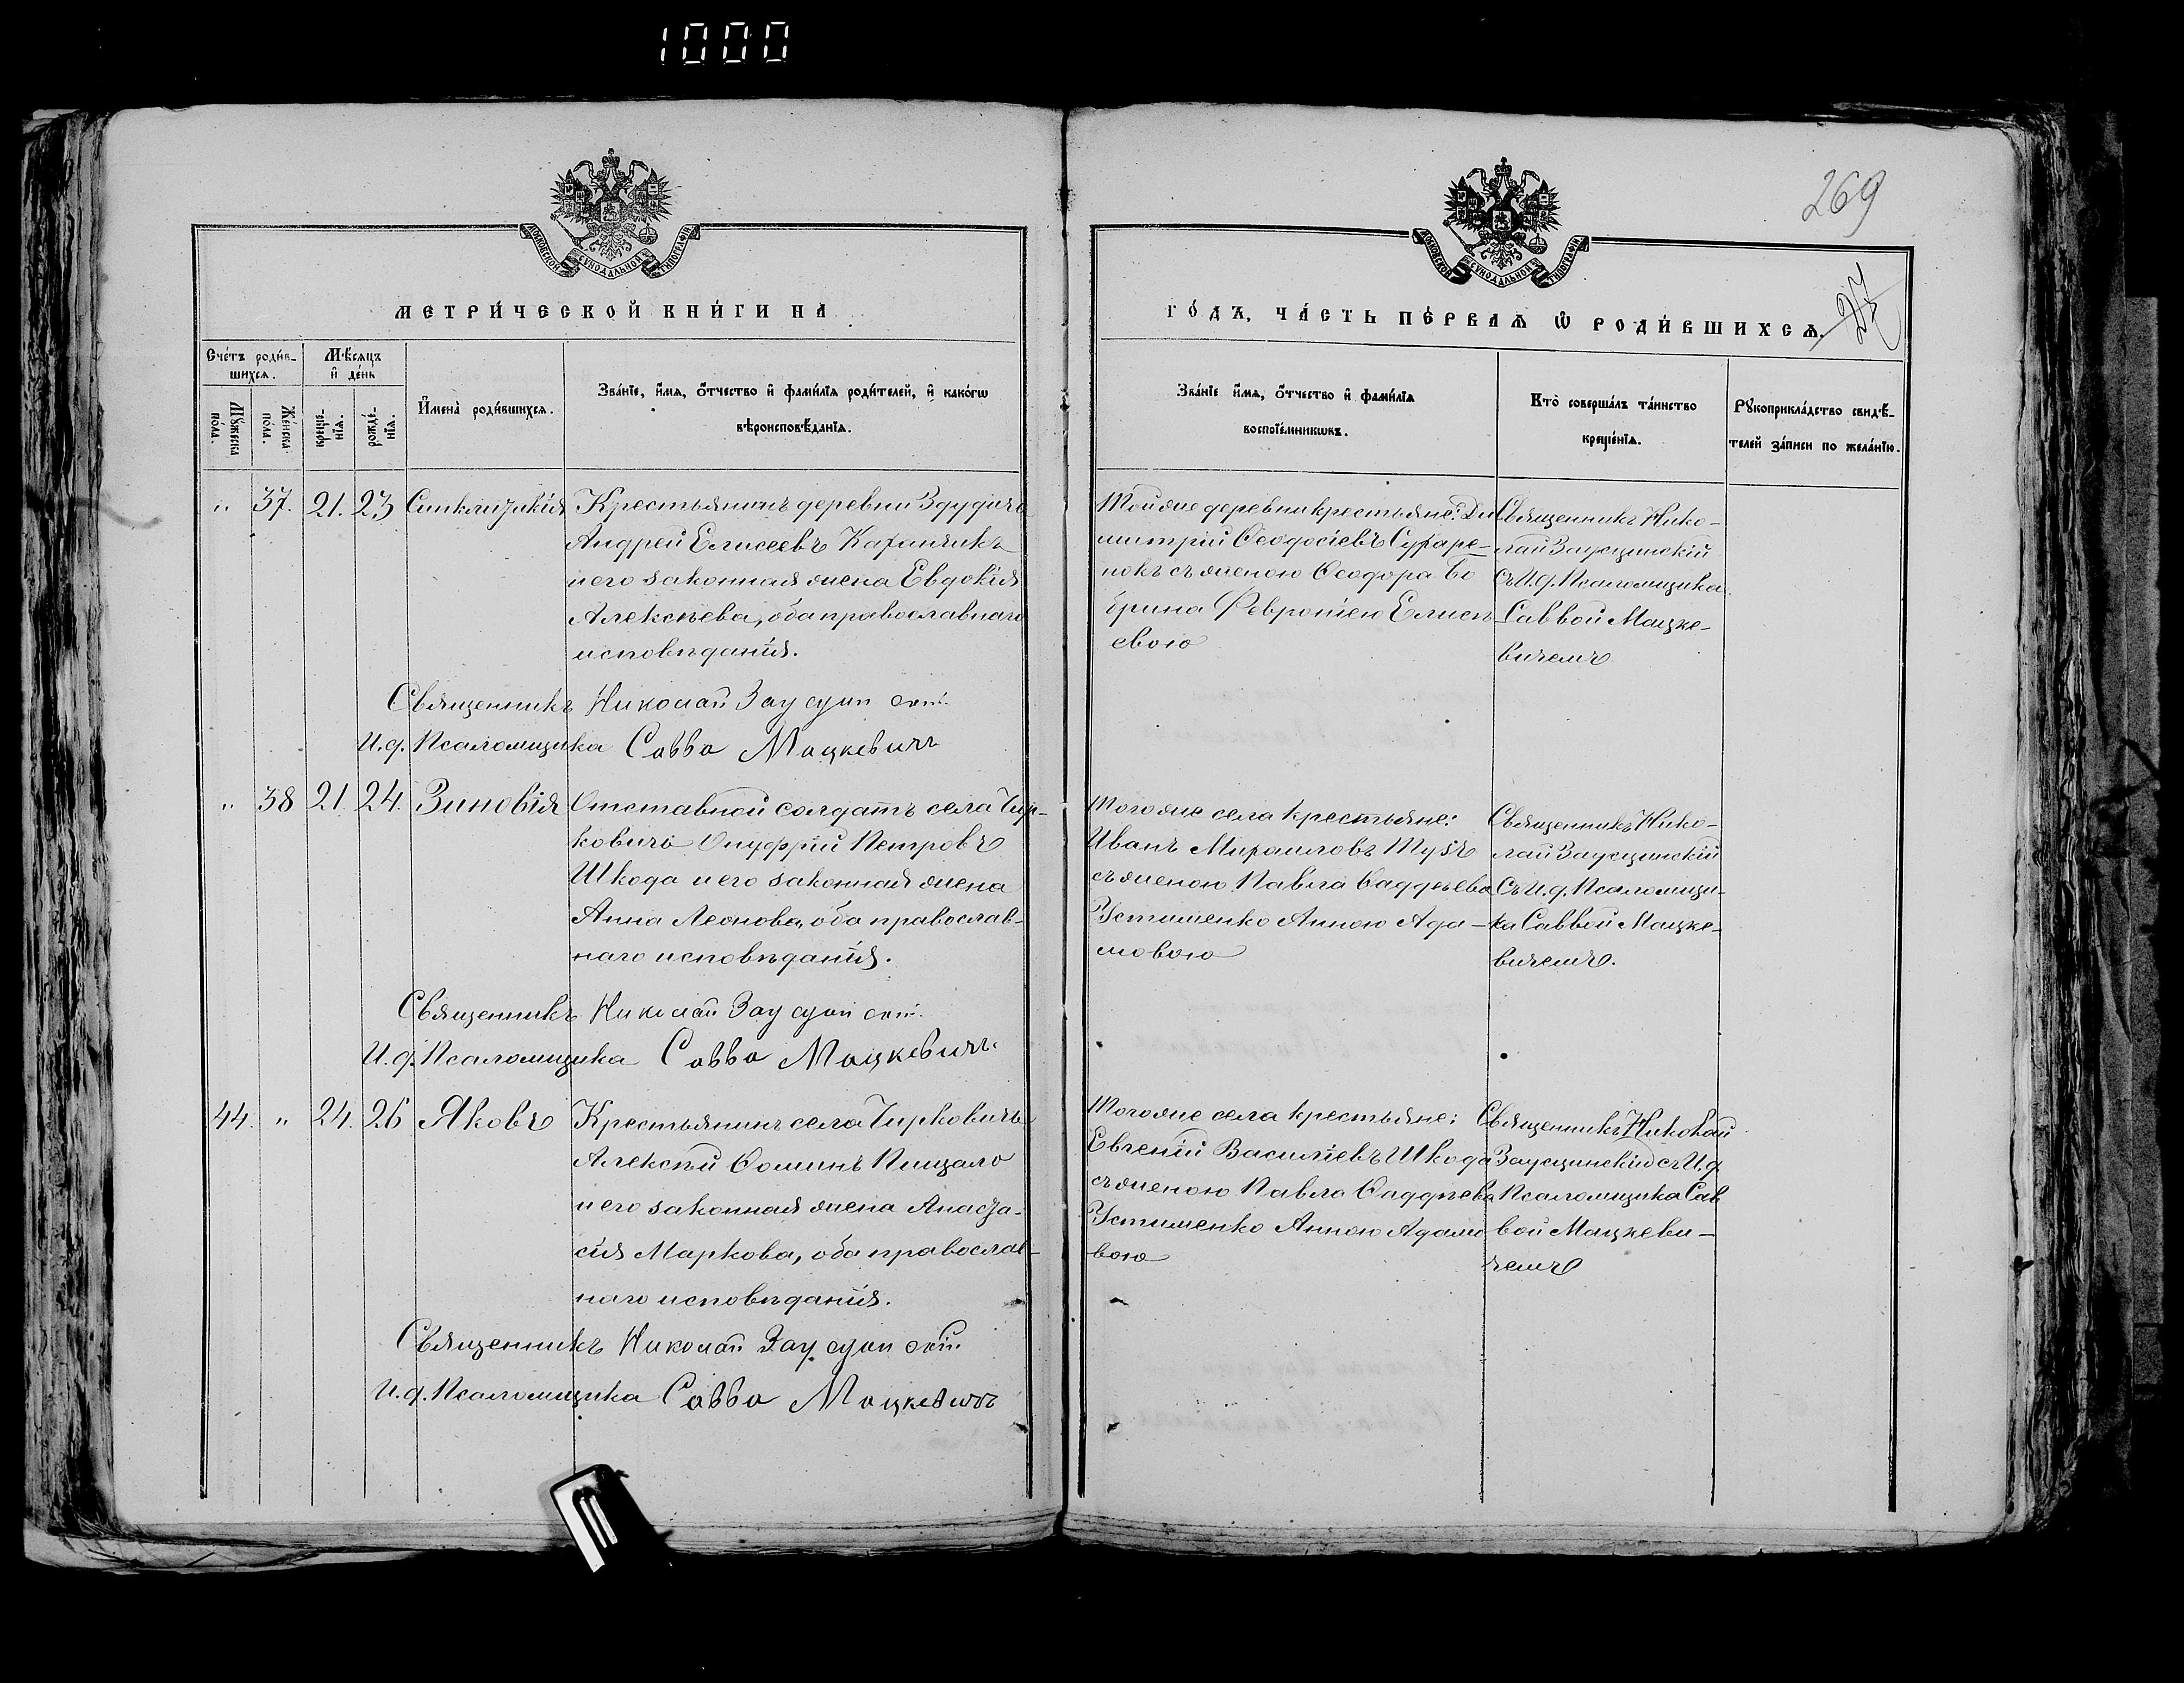 1000
269
27
МОСКОВСКОЙ СѴНОДАЛЬНОЙ ТИПОГРАФІИ
МОСКОВСКОЙ СѴНОДАЛЬНОЙ ТИПОГРАФІИ
МЕТРИ́ЧЕСКОЙ КНИ́ГИ НА
ГО́ДЪ, ЧА́СТЬ ПЕ́РВАѦ Ѡ҆ РОДИ́ВШИХСѦ.
Сче́тъ роди́в-
шихсѧ.
Мѣ́сѧцъ
и҆ де́нь
Мꙋ́жеска
по́ла.
Же́нска
по́ла.
креще́-
нїѧ.
рожде́-
нїѧ.
И҆мена̀ роди́вшихсѧ.
Зва́нїе, и҆́мѧ, о҆́тчество и҆ фами́лїѧ роди́телей, и҆ како́гѡ
вѣроисповѣ́данїѧ.
Зва́нїе и҆́мѧ, о҆́тчество и҆ фами́лїѧ
воспрїе́мникѡвъ.
Кто̀ соверша́лъ та́инство
креще́нїѧ.
Рꙋкоприкла́дство свидѣ́-
телей за́писи по жела́нїю.
" 37. 21. 23 Синклитикія
Крестьянинъ деревни Здудичъ
Андрей Елисеевъ
и его законная жена Евдокія
Алексѣева, оба православнаго
исповѣданія.
Тойже деревни крестьяне: Ди
митрій Ѳеодосіевъ
съ женою Ѳеодора
Февроніею Елисѣ
евою
Священникъ Нико-
лай Заусцинскій
съ И.д. Псаломщика
Саввой Мацке-
вичемъ
Священникъ Николай Заусцинскій
И.д. Псаломщика Савва Мацкевичъ
" 38 21. 24. Зиновія
Отставной солдатъ села Чир-
ковичъ Онуфрій Петровъ
Шкода и его законная жена
Анна Леонова, оба православ-
наго исповѣданія.
Тогоже села крестьяне:
Иванъ Михаиловъ Тузъ
съ женою Павла Ѳаддѣева
Устименко Анною Ада-
мовою
Священникъ Нико-
лай Заусцинскій
Съ И.д. Псаломщи-
ка Саввой Мацке-
вичемъ.
Священникъ Николай Заусцинскій
И.д. Псаломщика Савва Мацкевичъ.
44. " 24. 26 Яковъ
Крестьянинъ села Чирковичъ
Алексѣй Ѳоминъ Пищало
и его законная жена Анаста-
сія Маркова, оба православ-
наго исповѣданія.
Тогоже села крестьяне:
Евгеній Василіевъ Шкода
съ женою Павла Ѳаддѣева
Устименко Анною Адамо
вою
Священникъ Николай
Заусцинскій съ И.д.
Псаломщика Сав
вой Мацкеви-
чемъ
Священникъ Николай Заусцинскій
И.д. Псаломщика Савва Мацкевичъ